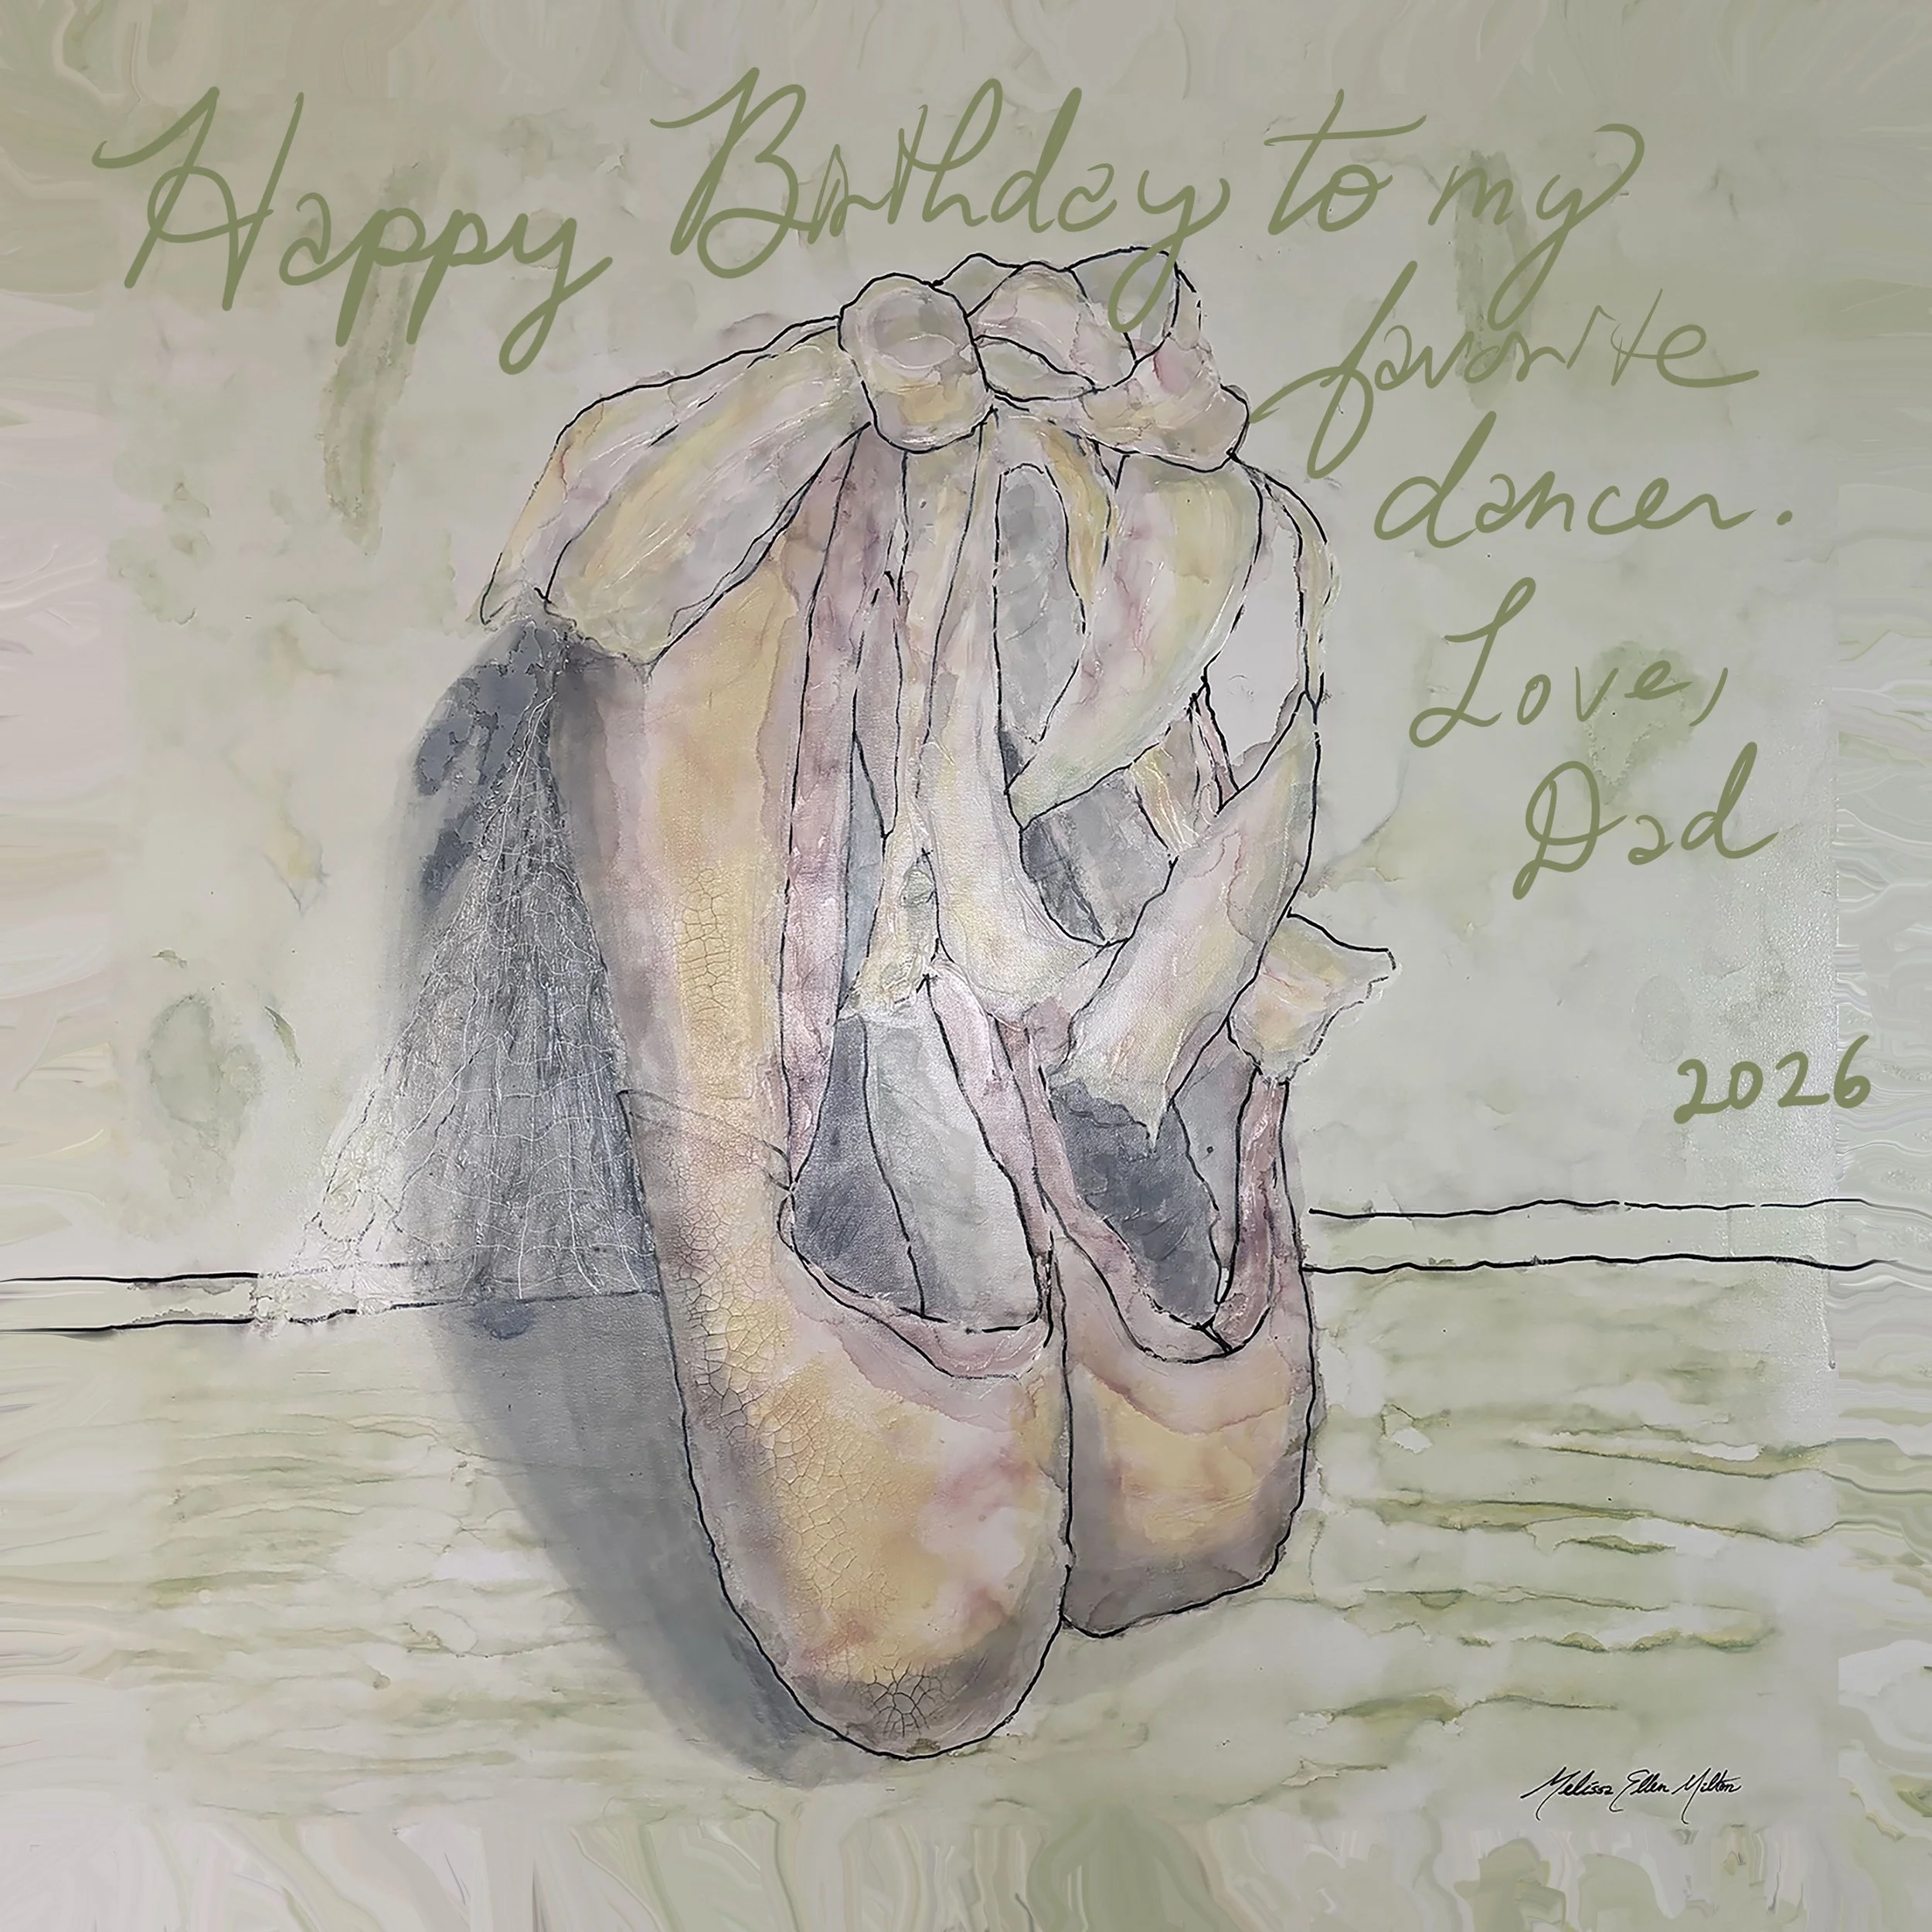 Happy Birthday to my
favorite
dancer.
Love,
Dad
2026
Melissa Ellen Milton